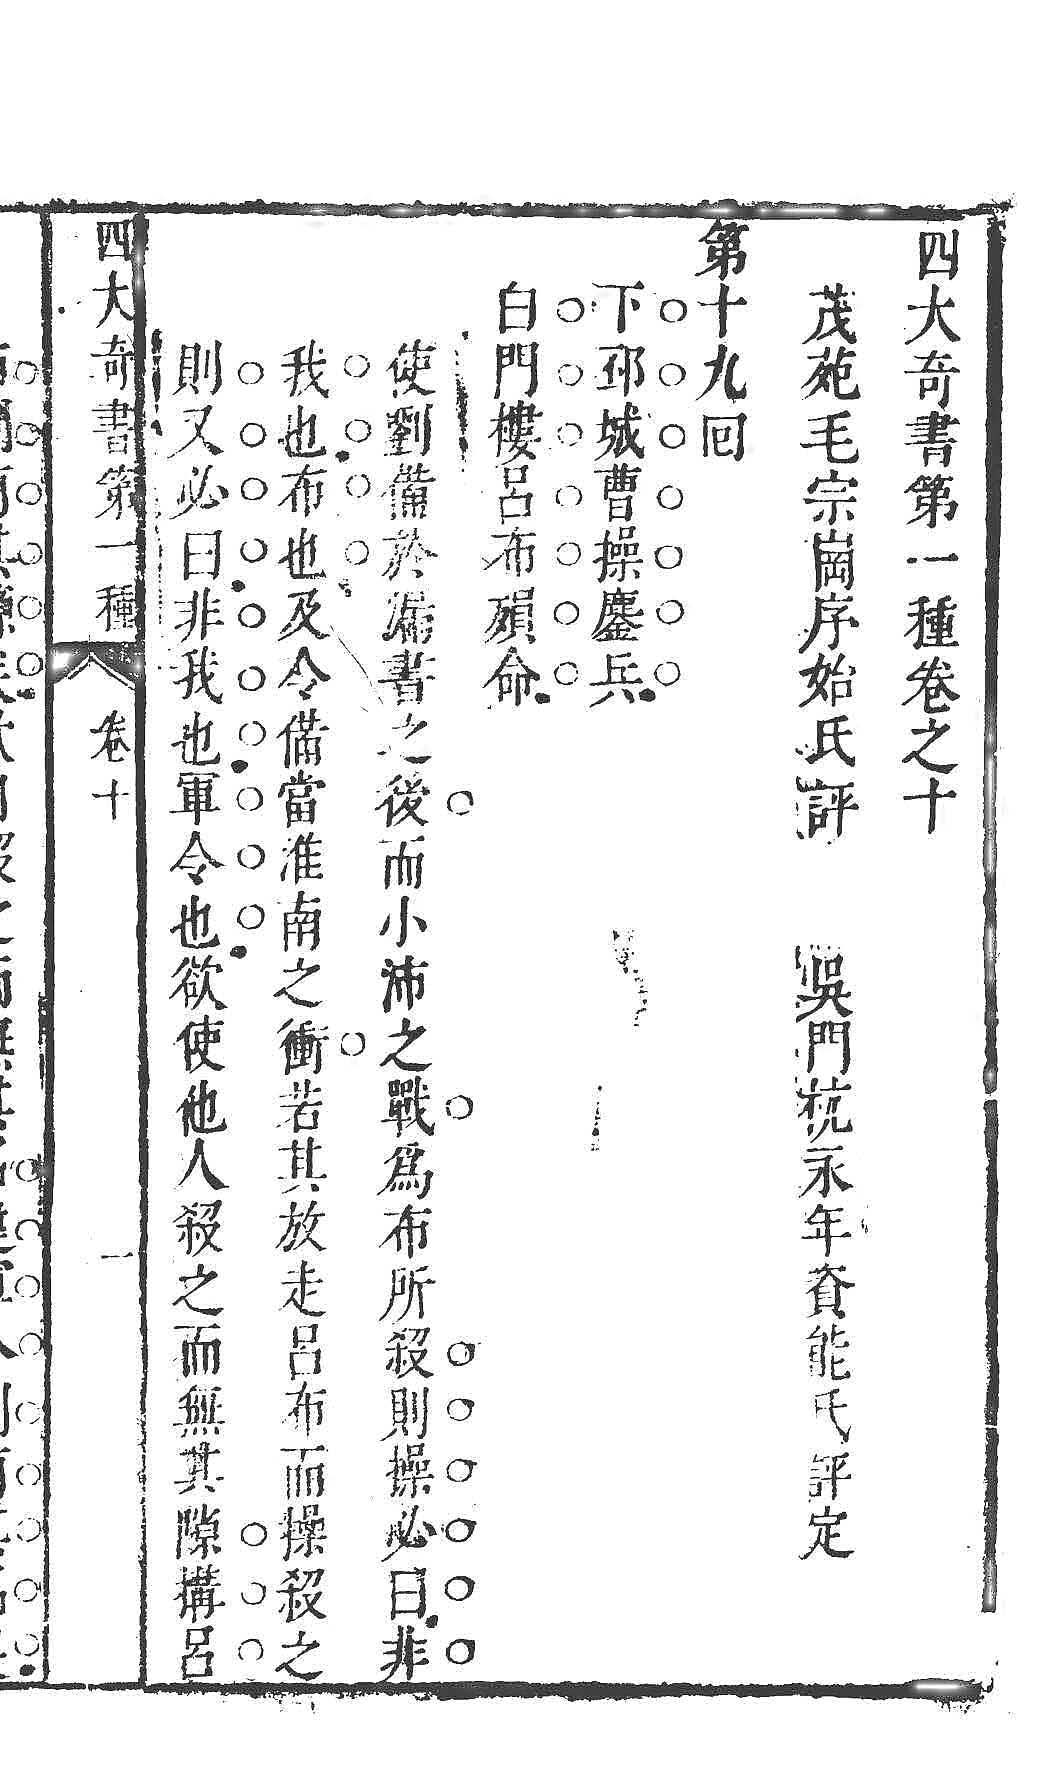 四大奇書第一種卷之十
茂苑毛宗崗序始氏評　吳門杭永年資能氏評定
第十九回
下邳城曹操鏖兵
白門樓呂布殞命
使劉備於漏書之後而小沛之戰爲布所殺則操必曰非
我也布也及令備當淮南之衝若其放走呂布而操殺之
則又必曰非我也軍令也欲使他人殺之而無其隙搆呂
四大奇書第一種　卷十　一